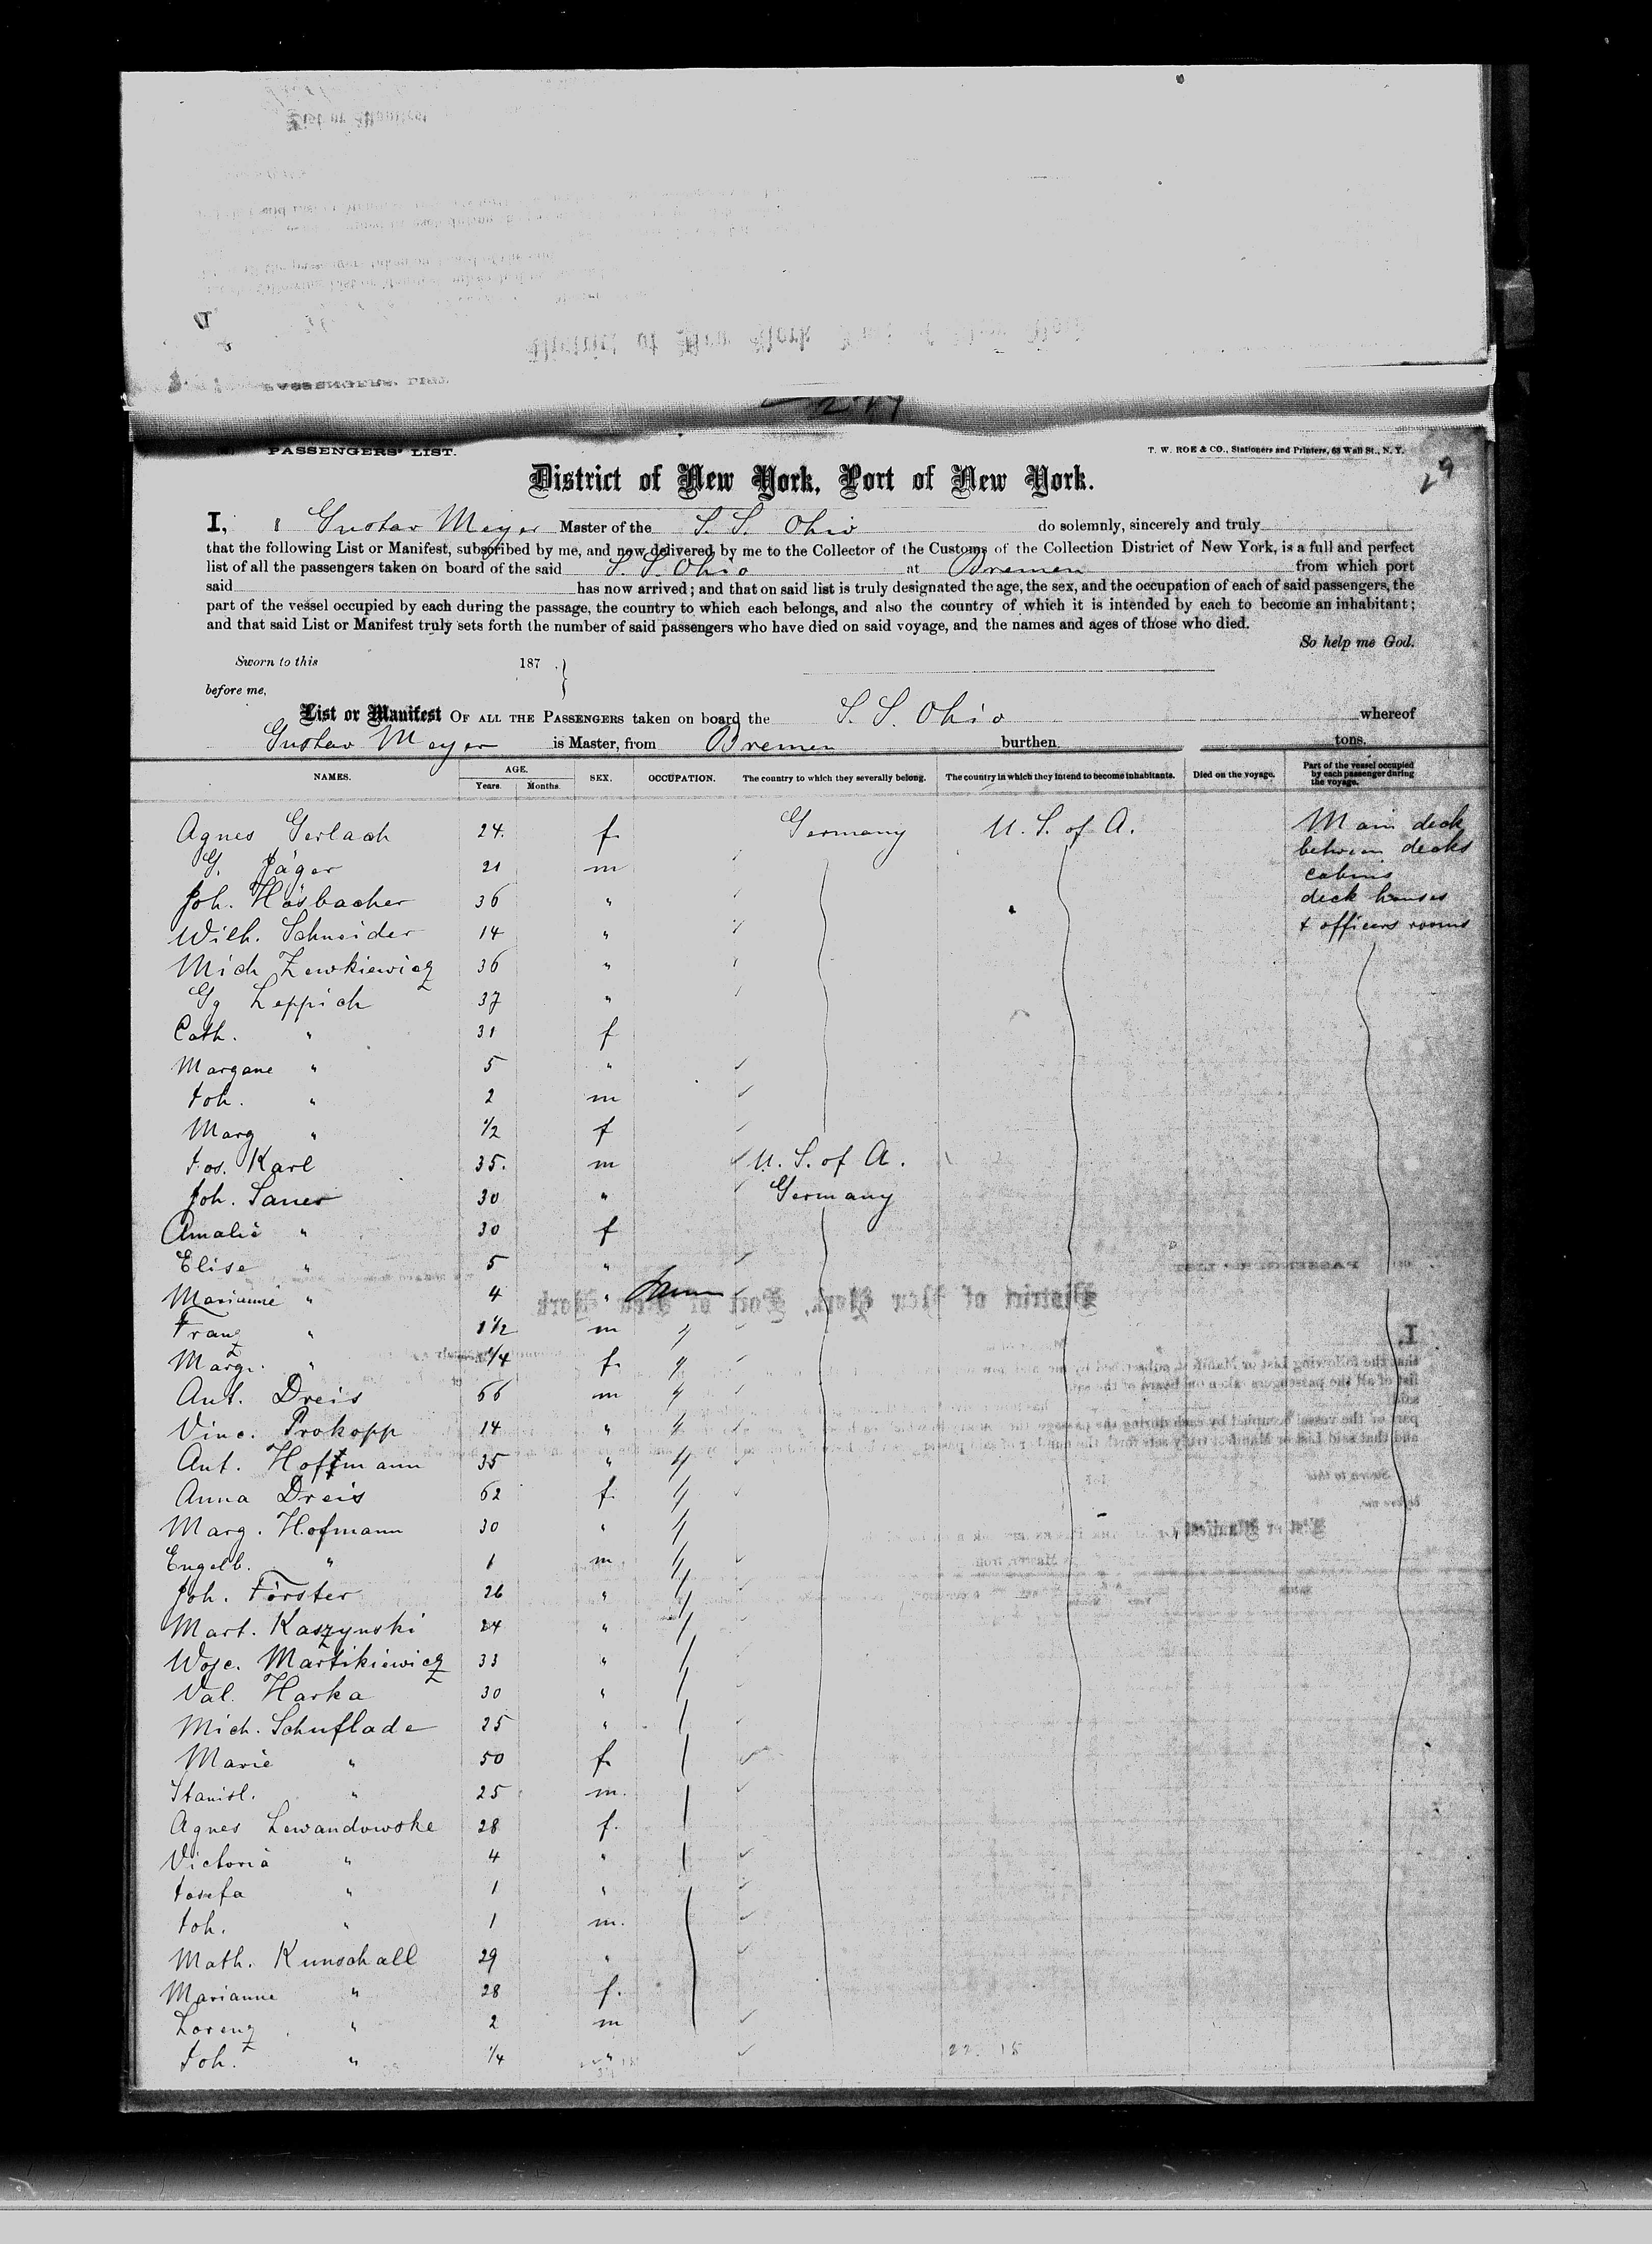 PASSENGERS' LIST.
T. W. ROE & CO., Stationers and Printers, 63 Wall St., N. Y.
29
District of New York, Port of New York.
I, Gustav Meyer Master of the S. S. Ohio do solemnly, sincerely and truly
that the following List or Manifest, subscribed by me, and now delivered by me to the Collector of the Customs of the Collection District of New York, is a full and perfect
list of all the passengers taken on board of the said S. S. Ohio at Bremen from which port
said has now arrived; and that on said list is truly designated the age, the sex, and the occupation of each of said passengers, the
part of the vessel occupied by each during the passage, the country to which each belongs, and also the country of which it is intended by each to become an inhabitant;
and that said List or Manifest truly sets forth the number of said passengers who have died on said voyage, and the names and ages of those who died.
So help me God.
Sworn to this 187
before me,
List or Manifest OF ALL THE PASSENGERS taken on board the S. S. Ohio whereof
Gustav Meyer is Master, from Bremen burthen tons.
NAMES. AGE. Years. Months. SEX. OCCUPATION. The country to which they severally belong. The country in which they intend to become inhabitants. Died on the voyage. Part of the vessel occupied by each passenger during the voyage.
Agnes Gerlach 24. f. Germany U. S. of A. Main deck
between decks
G. Jäger 21 m cabins
Joh. Hösbacher 36 " deck houses
Wilh. Schneider 14 " + officers rooms
Mich Zewkiewicz 36 "
Gg Leppich 37 "
Cath. " 31 f
Margane " 5 "
Joh. " 2 m
Marg " 1/2 f
Jos. Karl 35. m U. S. of A.
Joh. Sauer 30 " Germany
Amalie " 30 f
Elise " 5 "
Marianne " 4 "
Franz " 1 1/2 m "
Marg. " 1/4 f. "
Ant. Dreis 66 m "
Vinc. Prokopp 14 " "
Ant. Hoffmann 35 " "
Anna Dreis 62 f. "
Marg. Hofmann 30 " "
Engelb. " 1 m "
Joh. Förster 26 " "
Mart. Kaszynski 24 " "
Wojc. Martikiewicz 33 "
Val. Harka 30 "
Mich. Schuflade 25 "
Marie " 50 f.
Stanisl. " 25 m.
Agnes Lewandowske 28 f.
Victoria " 4 "
Josefa " 1 "
Joh. " 1 m.
Math. Kunschall 29 "
Marianne " 28 f.
Lorenz " 2 m
Joh. " 1/4 "